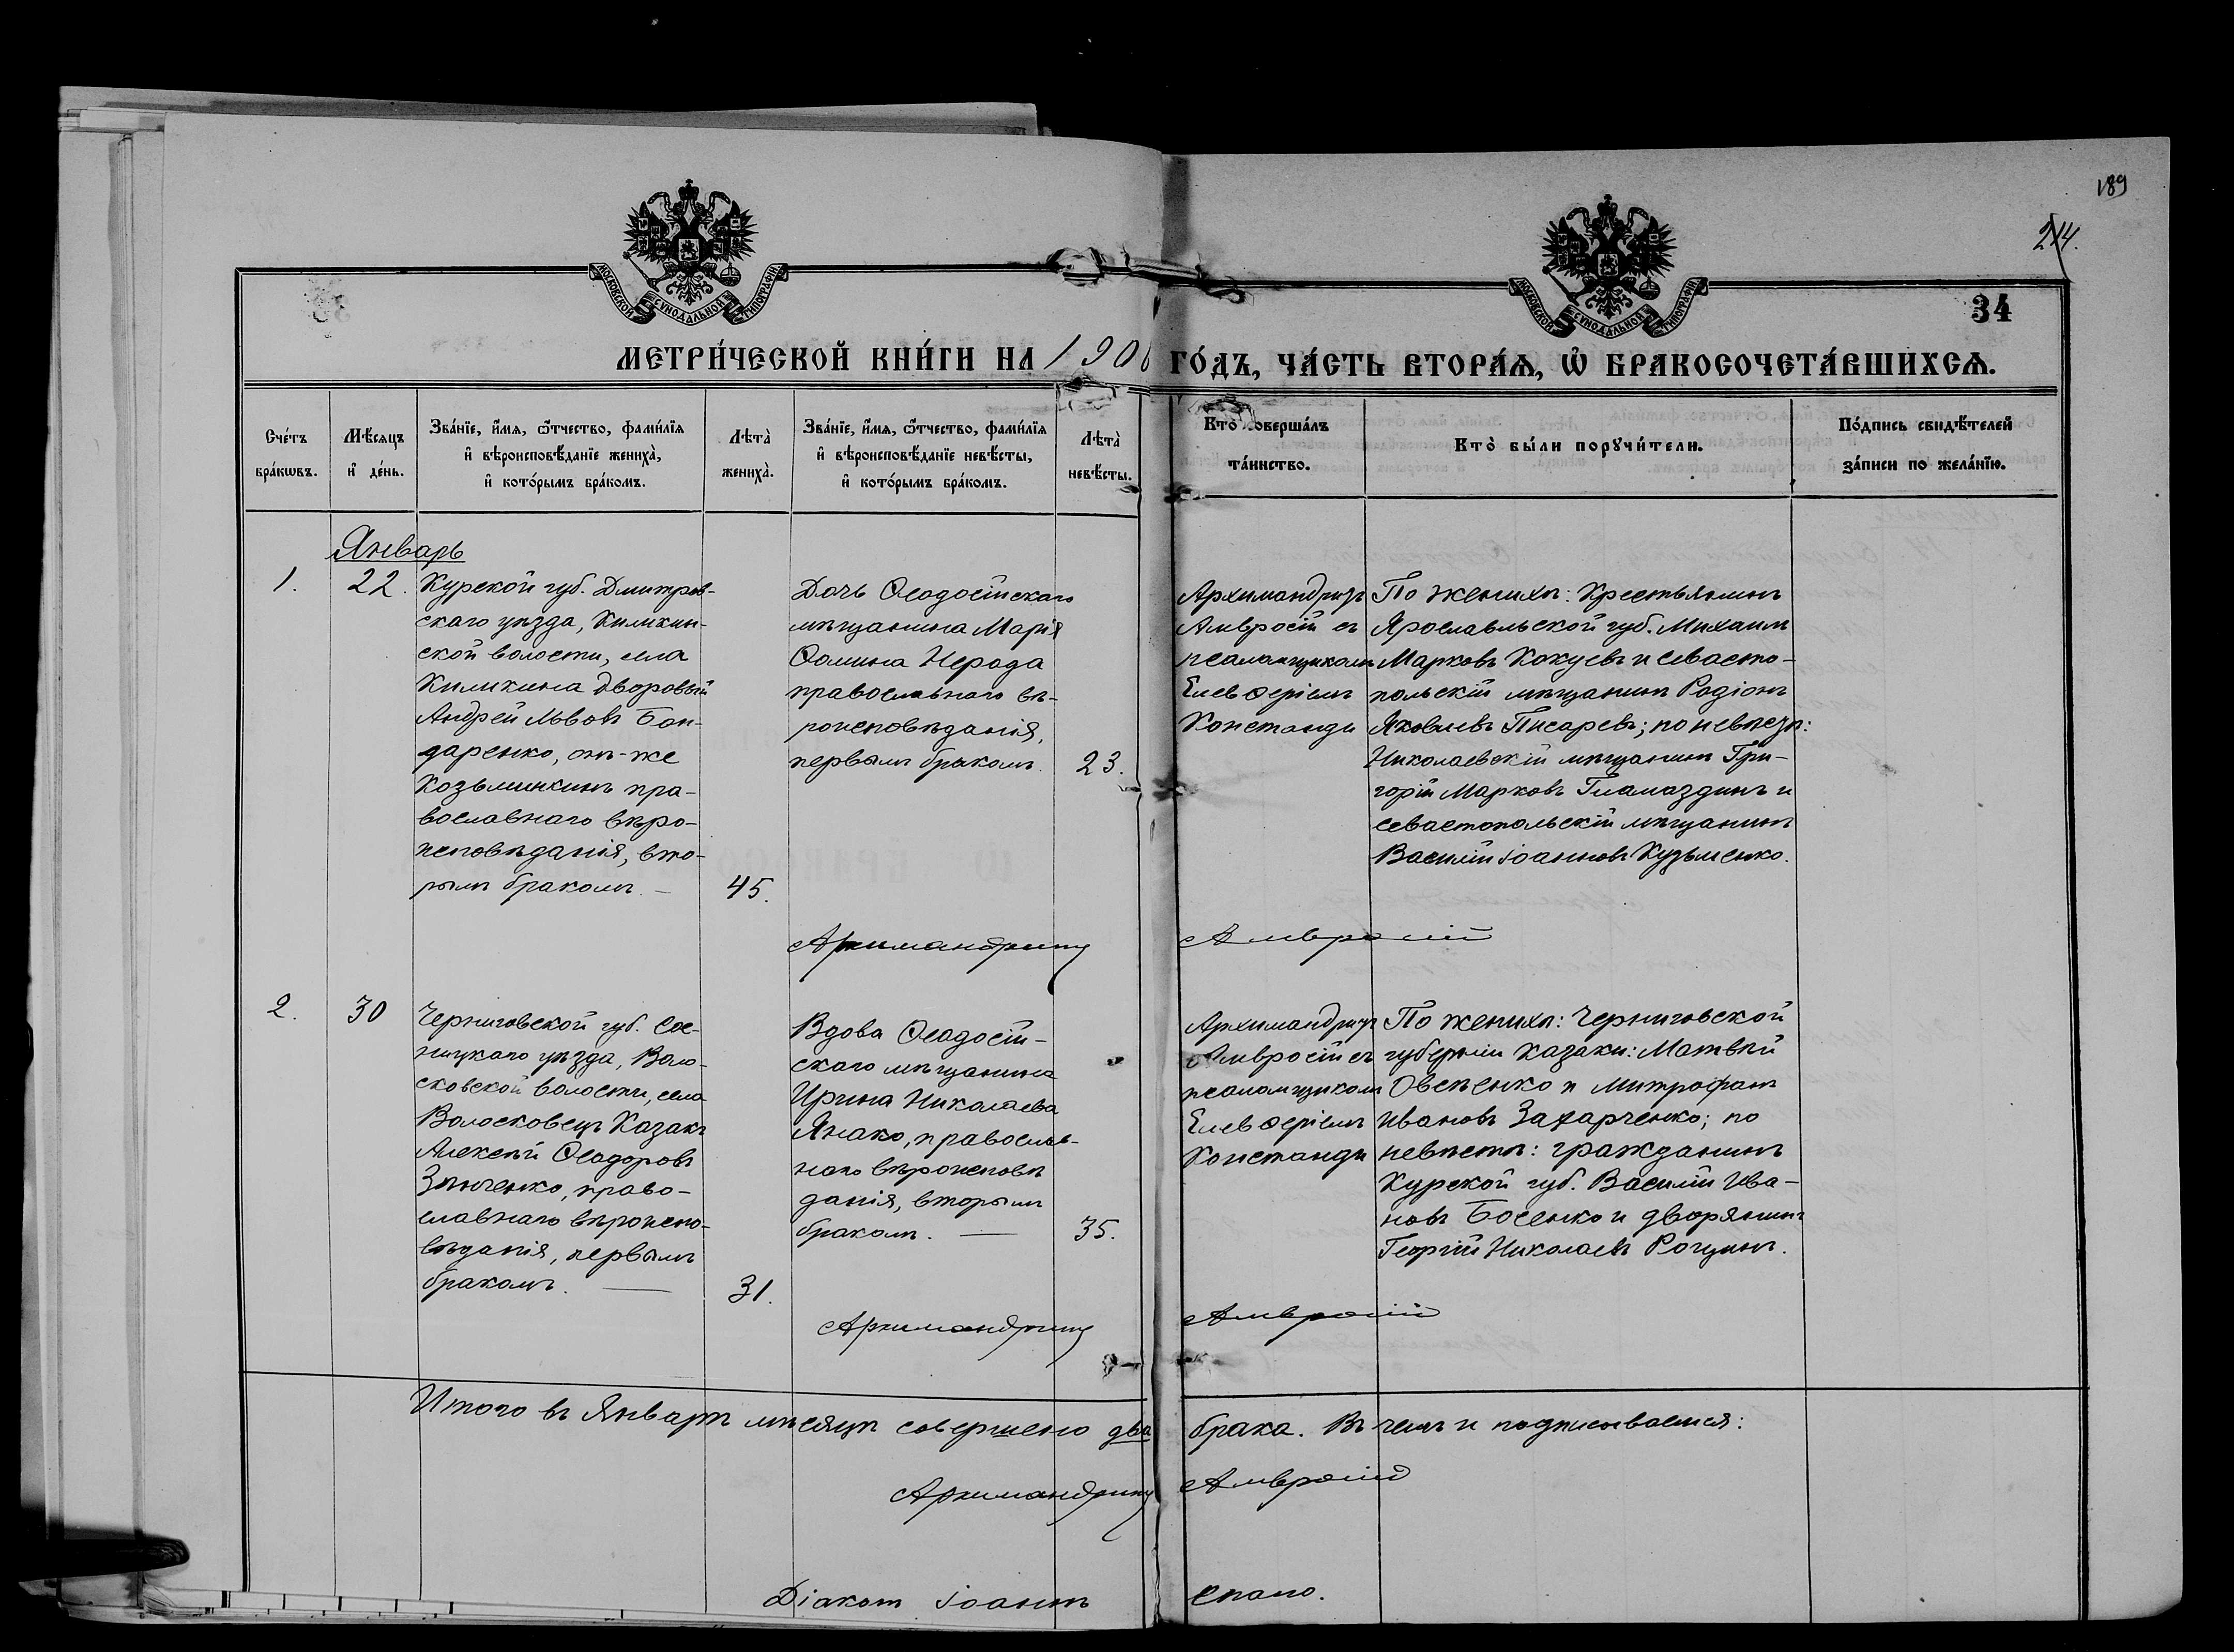 189
214.
34
МОСКОВСКОЙ СѴНОДАЛЬНОЙ ТИПОГРАФІИ.
МОСКОВСКОЙ СѴНОДАЛЬНОЙ ТИПОГРАФІИ.
МЕТРИ́ЧЕСКОЙ КНИ́ГИ НА 1906 ГО́ДЪ, ЧА́СТЬ ВТОРА́Ѧ, Ѽ БРАКОСОЧЕТА́ВШИХСѦ.
Сче́тъ
бра́кѡвъ.
Мѣ́сяцъ
и҆ де́нь.
Зва́нїе, и҆́мя, ѻ҆́тчество, фами́лїя
и҆ вѣроисповѣ́данїе жениха̀,
и҆ кото́рымъ бра́комъ.
Лѣта̀
жениха̀.
Зва́нїе, и҆́мя, ѻ҆́тчество, фами́лїя
и҆ вѣроисповѣ́данїе невѣ́сты,
и҆ кото́рымъ бра́комъ.
Лѣта̀
невѣ́сты.
Кто̀ соверша́лъ
та́инство.
Кто̀ бы́ли порꙋчи́тели.
По́дпись свидѣ́телей
за́писи по жела́нїю.
Январь
1.
22.
Курской губ. Дмитров-
скаго уѣзда, Киликин-
ской волости, села
Киликина дворовый
Андрей Львовъ Бон-
даренко, онъ-же
Козьминкинъ пра-
вославнаго вѣро-
исповѣданія, вто-
рымъ бракомъ. —
45.
Дочь Ѳеодосійскаго
мѣщанина Марія
Ѳомина Нерода
православнаго вѣ-
роисповѣданія,
первымъ бракомъ.
23.
Архимандритъ
Амвросій съ
псаломщикомъ
Елевѳеріемъ
Констанди
По женихѣ: Крестьянинъ
Ярославльской губ. Михаилъ
Марковъ Кокуевъ и севасто-
польскій мѣщанинъ Родіонъ
Яковлевъ Писаревъ; по невѣстѣ:
Николаевскій мѣщанинъ Гри-
горій Марковъ Гламаздинъ и
севастопольскій мѣщанинъ
Василій Іоанновъ Кузьменко.
Архимандритъ Амвросій
2.
30
Черниговской губ. Сос-
ницкаго уѣзда, Воло-
сковской волости, села
Волосковецъ Казакъ
Алексѣй Ѳеодоровъ
Зінченко, право-
славнаго вѣроиспо-
вѣданія, первымъ
бракомъ. —
31.
Вдова Ѳеодосій-
скаго мѣщанина
Ирина Николаева
Янако, православ-
наго вѣроисповѣ
данія, вторымъ
бракомъ. —
35.
Архимандритъ
Амвросій съ
псаломщикомъ
Елевѳеріемъ
Констанди
По женихѣ: Черниговской
губерніи казаки: Матвѣй
Овсѣенко и Митрофанъ
Ивановъ Захарченко; по
невѣстѣ: гражданинъ
Курской губ. Василій Ива-
новъ Босенко и дворянинъ
Георгій Николаевъ Рощинъ.
Архимандритъ Амвросій
Итого въ Январѣ мѣсяцѣ совершено два брака. Въ чемъ и подписываемся:
Архимандритъ Амвросій
Діаконъ Іоаннъ Спано.